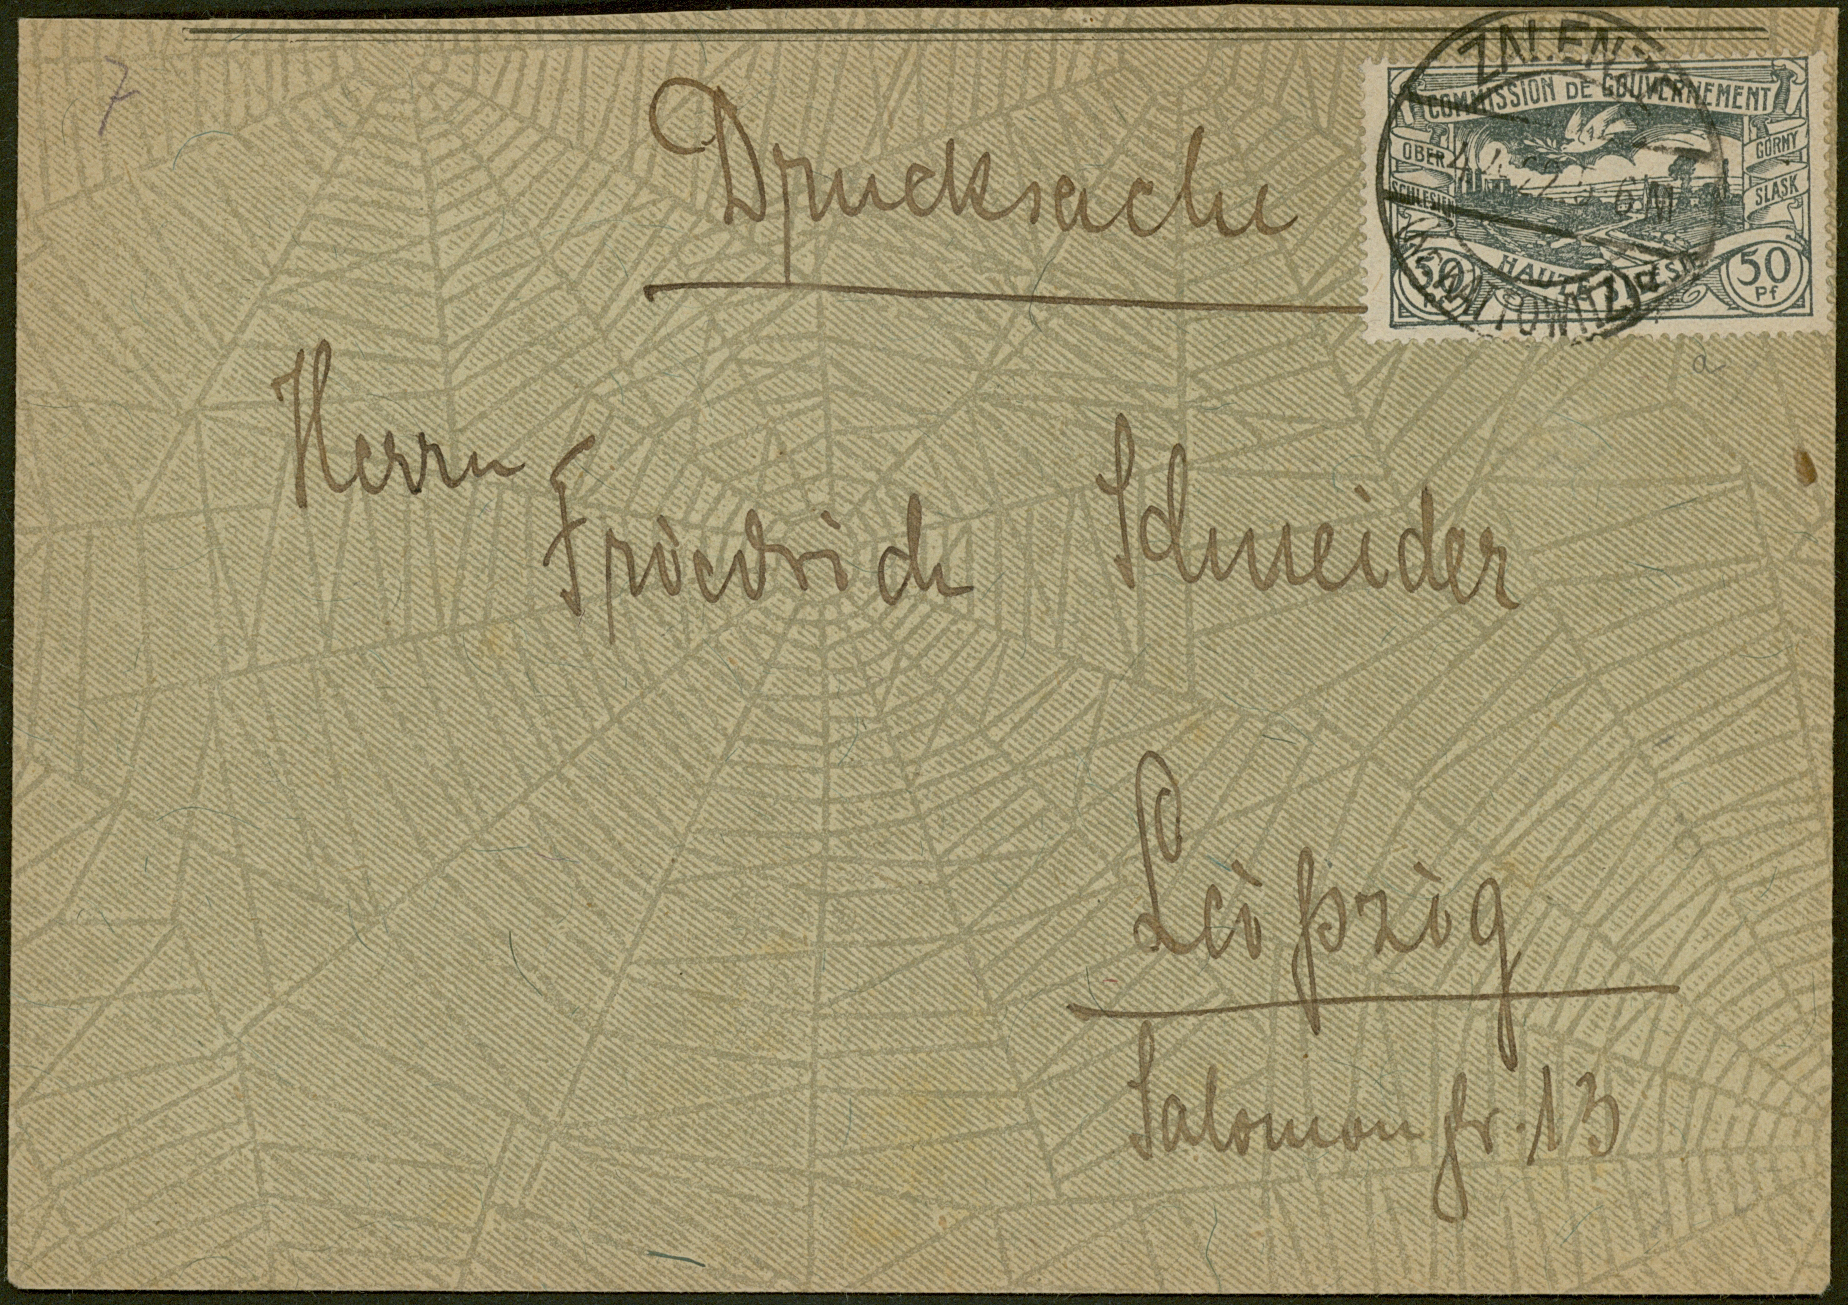 7
Drucksache
ZALENZE
COMMISSION DE GOUVERNEMENT
OBER
SCHLESIEN
GORNY
SLASK
50 Pf
HAUTE SILESIE
50 Pf
a
Herrn
Friedrich Schneider
Leipzig
Salomonstr. 13